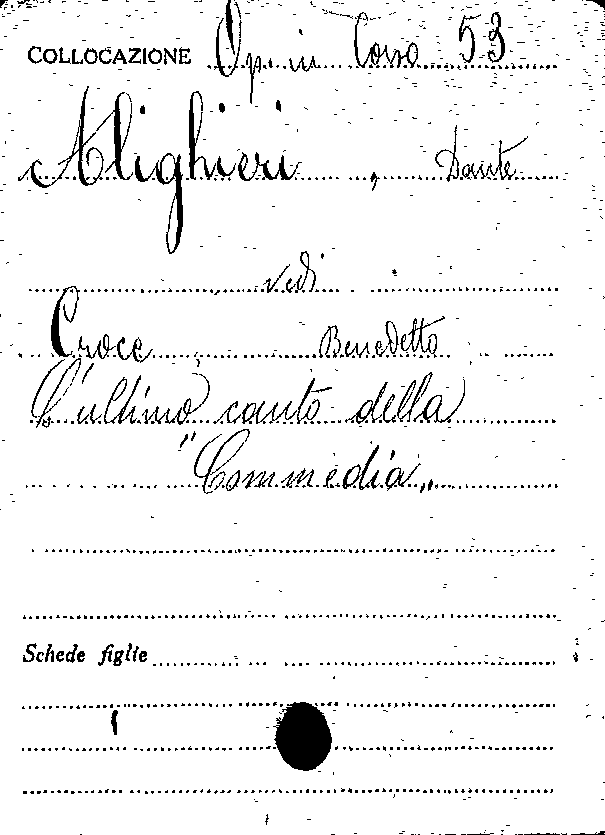 COLLOCAZIONE Op. in Corso 53
Alighieri, Dante
vedi
Croce, Benedetto
L'ultimo canto della
"Commedia„
Schede figlie